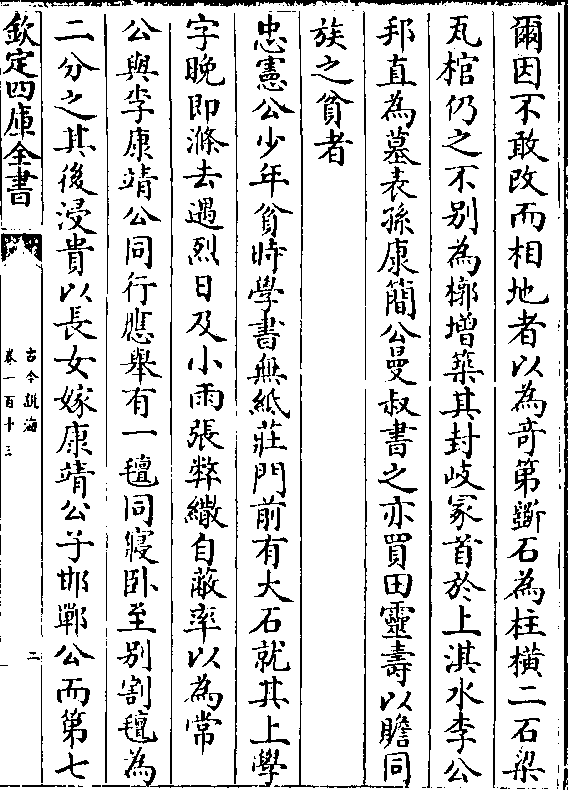 爾因不敢改而相地者以為奇第斵石為柱横二石梁
瓦棺仍之不别為槨增築其封岐冢首於上淇水李公
邦直為墓表孫康簡公曼叔書之亦買田靈壽以贍同
族之貧者
忠憲公少年貧時學書無紙莊門前有大石就其上學
字晚即滌去遇烈日及小雨張弊繖自蔽率以為常
公與李康靖公同行應舉有一氊同寢卧至别割氊為
二分之其後浸貴以長女嫁康靖公子邯鄲公而第七
欽定四庫全書
古今説海
卷一百十三
二